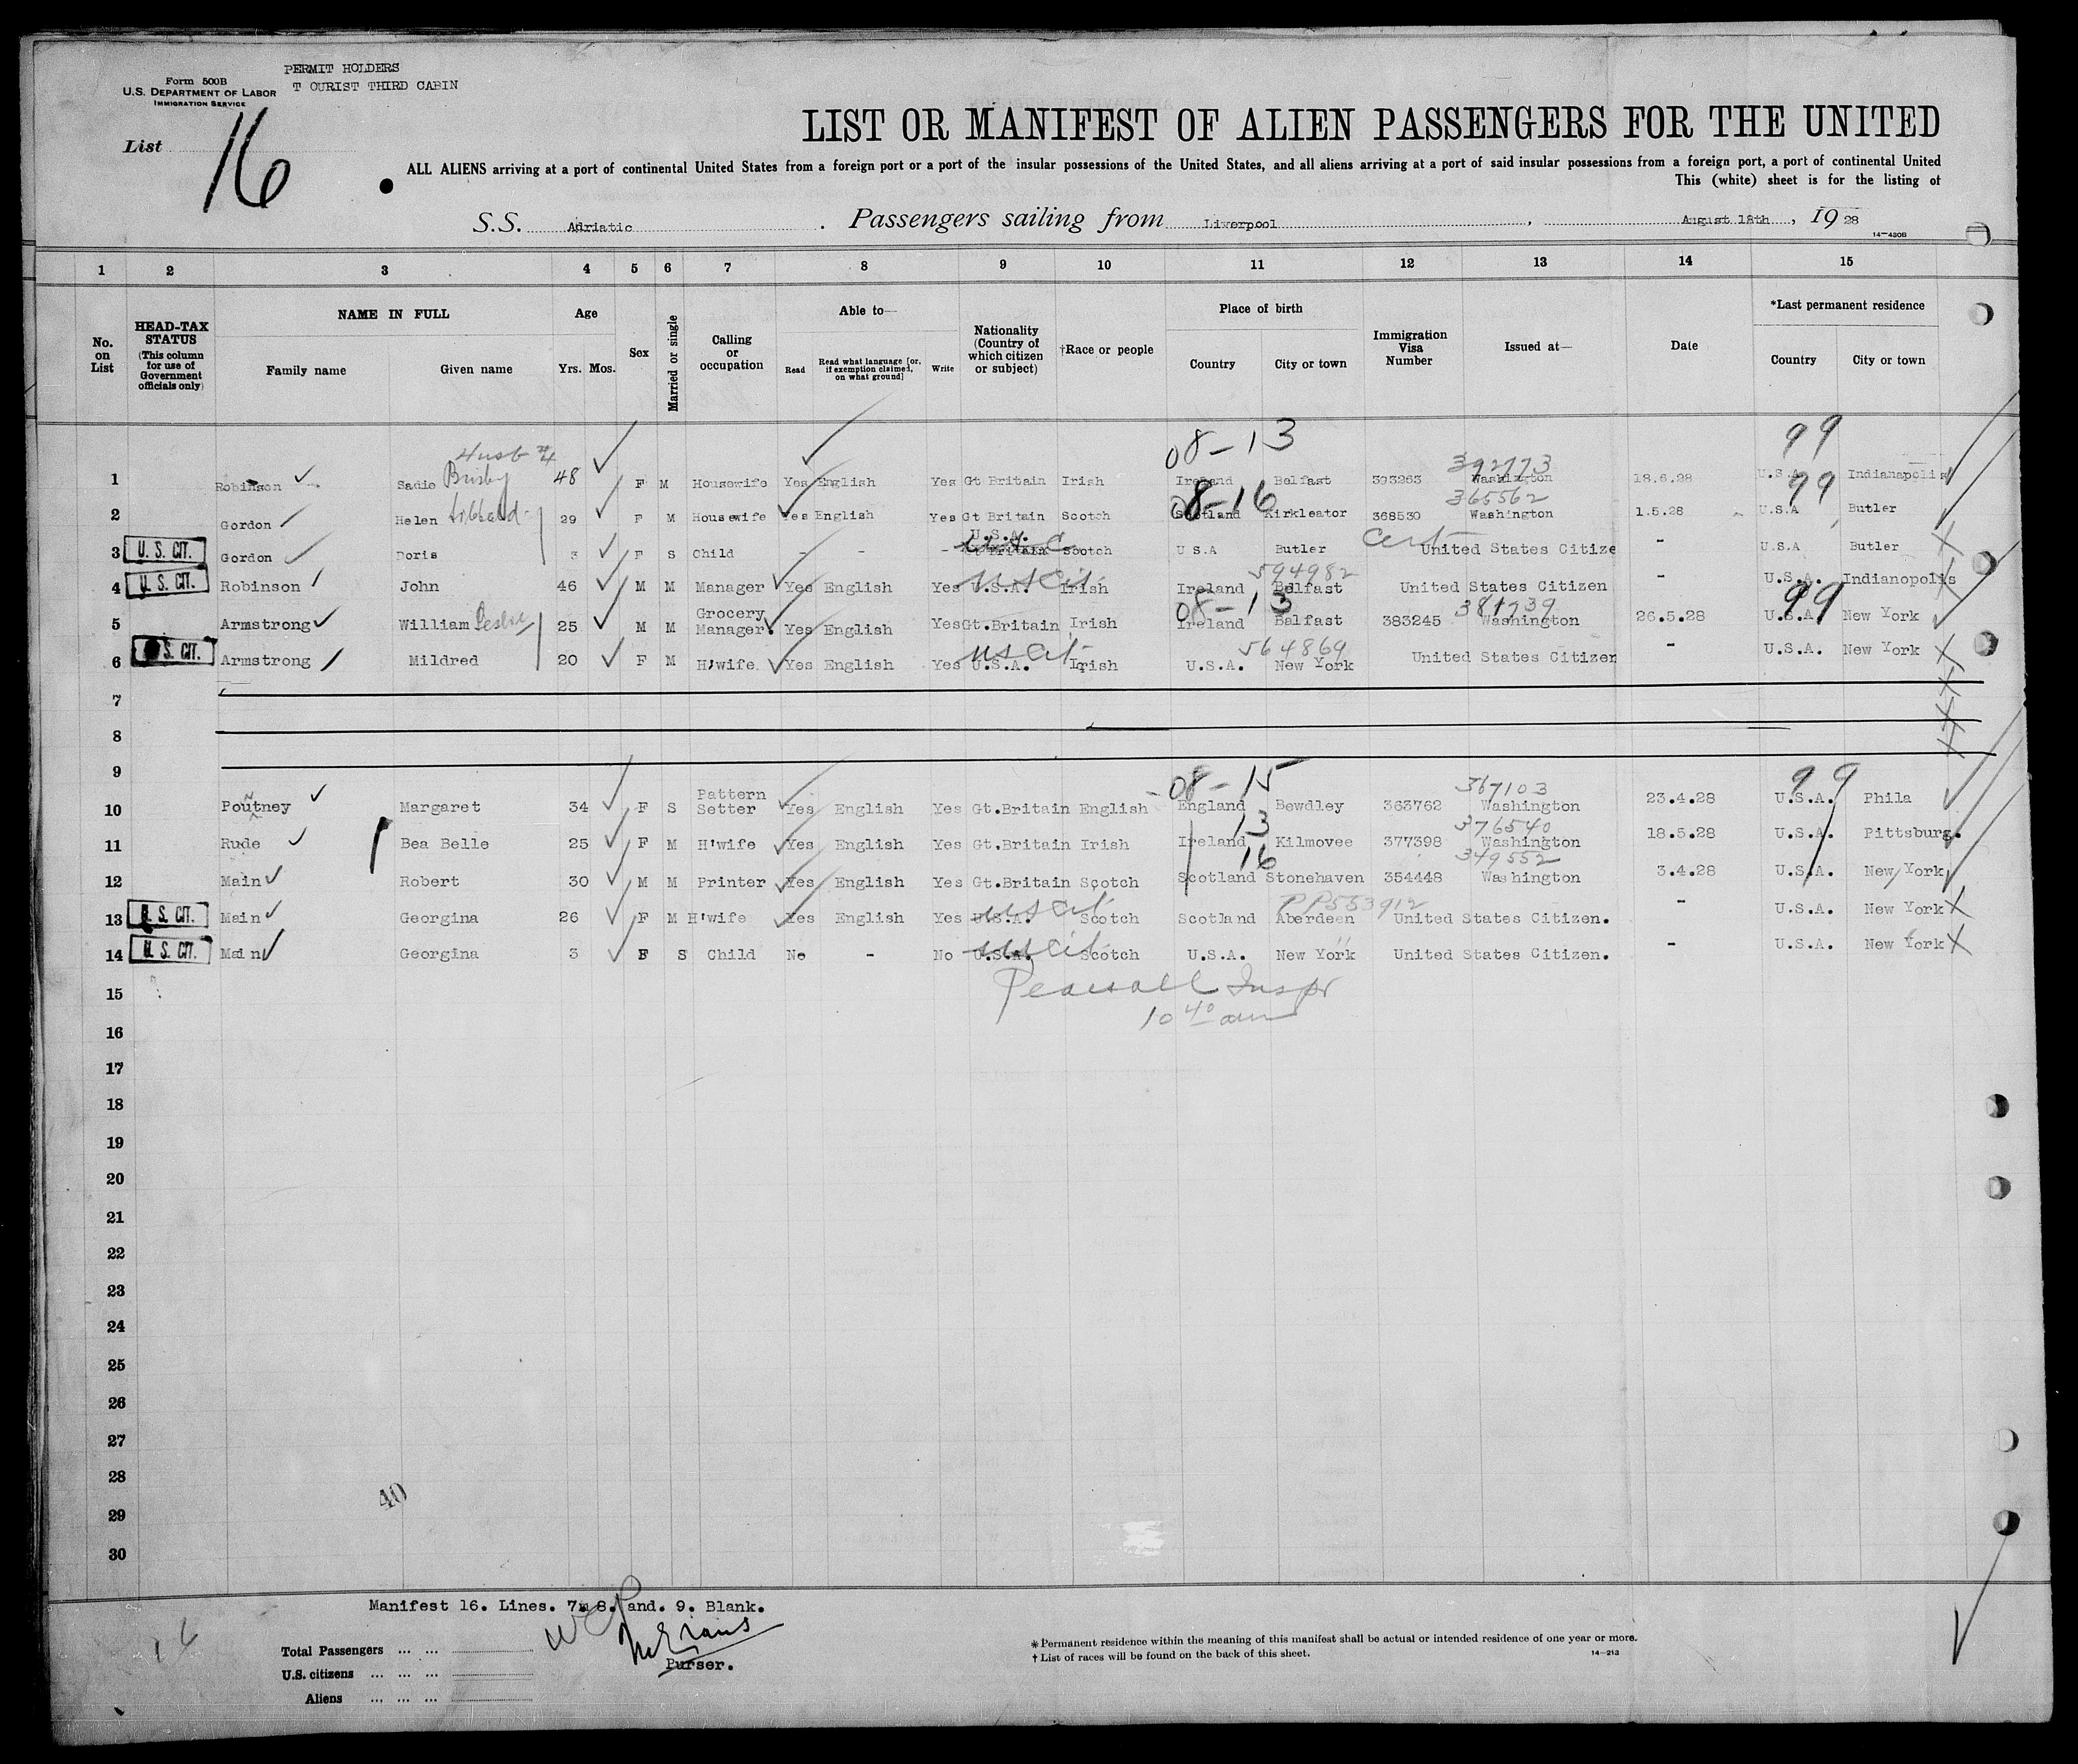 PERMIT HOLDERS
Form 500B
U.S. DEPARTMENT OF LABOR T OURIST THIRD CABIN
IMMIGRATION SERVICE
List 16
LIST OR MANIFEST OF ALIEN PASSENGERS FOR THE UNITED
ALL ALIENS arriving at a port of continental United States from a foreign port or a port of the insular possessions of the United States, and all aliens arriving at a port of said insular possessions from a foreign port, a port of continental United
This (white) sheet is for the listing of
S.S. Adriatic . Passengers sailing from Liverpool , August 18th , 19 28
14-430B
1 2 3 4 5 6 7 8 9 10 11 12 13 14 15
No. on List
HEAD-TAX STATUS (This column for use of Government officials only)
NAME IN FULL
Family name Given name
Age
Yrs. Mos.
Sex
Married or single
Calling or occupation
Able to—
Read Read what language [or, if exemption claimed, on what ground] Write
Nationality (Country of which citizen or subject)
†Race or people
Place of birth
Country City or town
Immigration Visa Number
Issued at—
Date
*Last permanent residence
Country City or town
Husb #4 08-13 99
392773
1 Robinson Sadie 48 F M Housewife Yes English Yes Gt Britain Irish Ireland Belfast 393263 Washington 18.6.28 U.S.A Indianapolis
8-16 365562 99
2 Gordon Helen 29 F M Housewife Yes English Yes Gt Britain Scotch Scotland Kirkleator 368530 Washington 1.5.28 U.S.A Butler
U.S.A. Cert
3 U. S. CIT. Gordon Doris 3 F S Child - - - Gt Britain Scotch U S.A Butler United States Citize - U.S.A Butler
US Cit. 594982
4 U. S. CIT. Robinson John 46 M M Manager Yes English Yes U.S.A. Irish Ireland Belfast United States Citizen - U.S.A. Indianopolis
08-13 381739 99
5 Armstrong William Leslie 25 M M Grocery Manager. Yes English Yes Gt.Britain Irish Ireland Belfast 383245 Washington 26.5.28 U.S.A. New York
US Cit 564869
6 S. CIT. Armstrong Mildred 20 F M H'wife. Yes English Yes U.S.A. Irish U.S.A. New York United States Citizen - U.S.A. New York
7
8
9
08-15 367103 99
10 Poutney Margaret 34 F S Pattern Setter Yes English Yes Gt.Britain English England Bewdley 363762 Washington 23.4.28 U.S.A. Phila
13 376540
11 Rude Bea Belle 25 F M H'wife Yes English Yes Gt.Britain Irish Ireland Kilmovee 377398 Washington 18.5.28 U.S.A. Pittsburg.
16 349552
12 Main Robert 30 M M Printer Yes English Yes Gt.Britain Scotch Scotland Stonehaven 354448 Washington 3.4.28 U.S.A. New York
US Cit PP553912
13 U. S. CIT. Main Georgina 26 F M H'wife Yes English Yes U.S.A. Scotch Scotland Aberdeen United States Citizen. - U.S.A. New York
US Cit
14 U. S. CIT. Main Georgina 3 F S Child No - No U.S.A. Scotch U.S.A. New York United States Citizen. - U.S.A. New York
15
Pearsall Inspr
16
10 40 am
17
18
19
20
21
22
23
24
25
26
27
28
40
29
30
Manifest 16. Lines. 7. 8. and. 9. Blank.
Total Passengers ... ...
U.S. citizens ... ... ...
Aliens ... ... ...
Purser.
* Permanent residence within the meaning of this manifest shall be actual or intended residence of one year or more.
† List of races will be found on the back of this sheet.
14-213